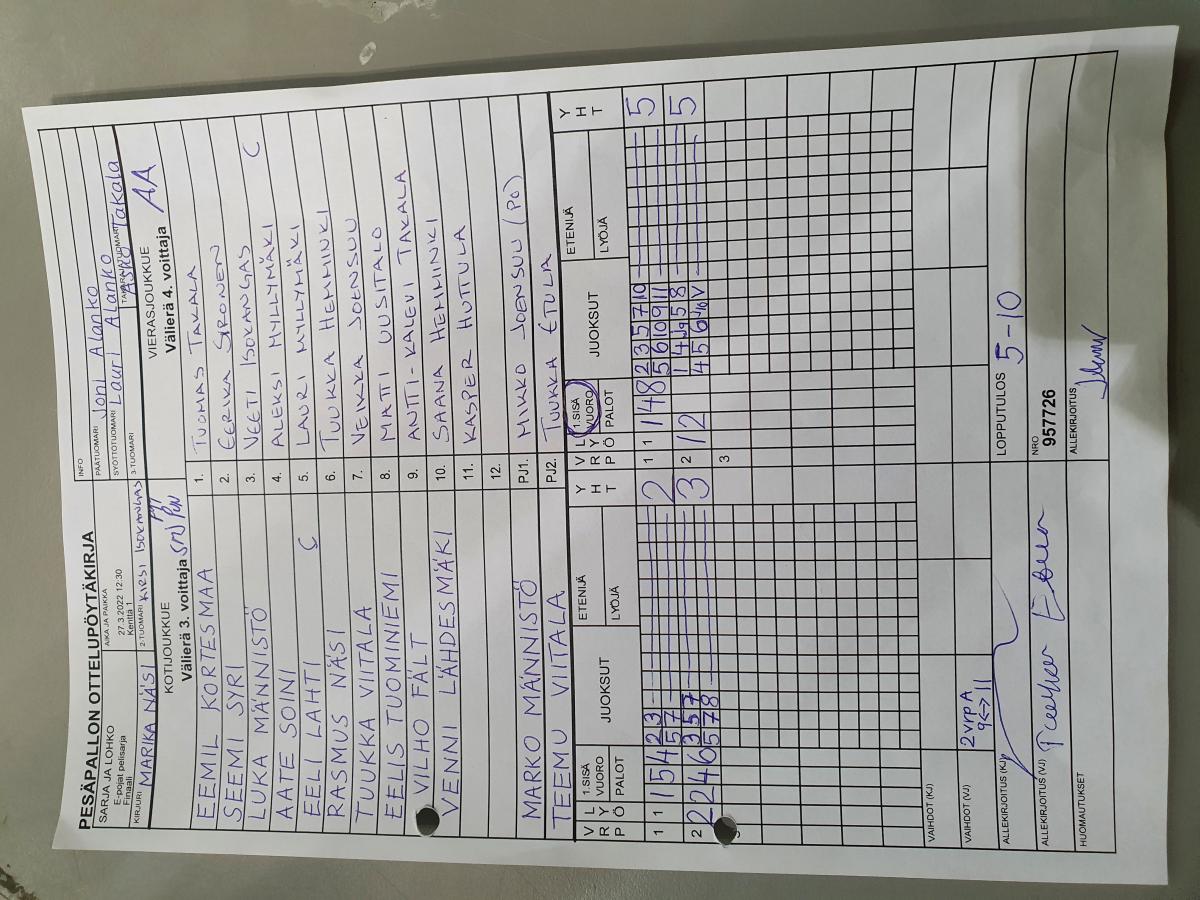 PESÄPALLON OTTELUPÖYTÄKIRJA
INFO
SARJA JA LOHKO
E-pojat pelisarja
Finaali
AIKA JA PAIKKA
27.3.2022 12:30
Kenttä 1
PÄÄTUOMARI Joni Alanko
SYÖTTÖTUOMARI Lauri Alanko
KIRJURI MARIKA NÄSI
2-TUOMARI KIRSI ISOKANGAS
3-TUOMARI
TAKARAJATUOMARI Asko Takala
KOTIJOUKKUE
Välierä 3. voittaja
VIERASJOUKKUE
Välierä 4. voittaja AA
EEMIL KORTESMAA 1. TUOMAS TAKALA
SEEMI SYRI 2. EERIKA SIRONEN
LUKA MÄNNISTÖ 3. VEETI ISOKANGAS C
AATE SOINI 4. ALEKSI MYLLYMÄKI
EELI LAHTI C 5. LAURI MYLLYMÄKI
RASMUS NÄSI 6. TUUKKA HEMMINKI
TUUKKA VIITALA 7. VEIKKA JOENSUU
EELIS TUOMINIEMI 8. MATTI UUSITALO
VILHO FÄLT 9. ANTTI-KALEVI TAKALA
VENNI LÄHDESMÄKI 10. SAANA HEMMINKI
11. KASPER HUTULA
12.
MARKO MÄNNISTÖ PJ1. MIKKO JOENSUU (PO)
TEEMU VIITALA PJ2. TUUKKA ETULA
V R P L Y Ö 1.SISÄ VUORO PALOT JUOKSUT ETENIJÄ LYÖJÄ Y H T
V R P L Y Ö 1.SISÄ VUORO PALOT JUOKSUT ETENIJÄ LYÖJÄ Y H T
1 1 1 5 4 2 3 2
5 7
1 1 1 4 8 2 3 5 7 10 5
5 6 10 9 11
2 2 2 4 6 3 5 7 3
5 7 8
2 12 1 4 5 8 5
4 5 6 V
3
VAIHDOT (KJ)
VAIHDOT (VJ) 2vrp A
9<->11
ALLEKIRJOITUS (KJ)
LOPPUTULOS 5-10
ALLEKIRJOITUS (VJ)
NRO
957726
HUOMAUTUKSET
ALLEKIRJOITUS